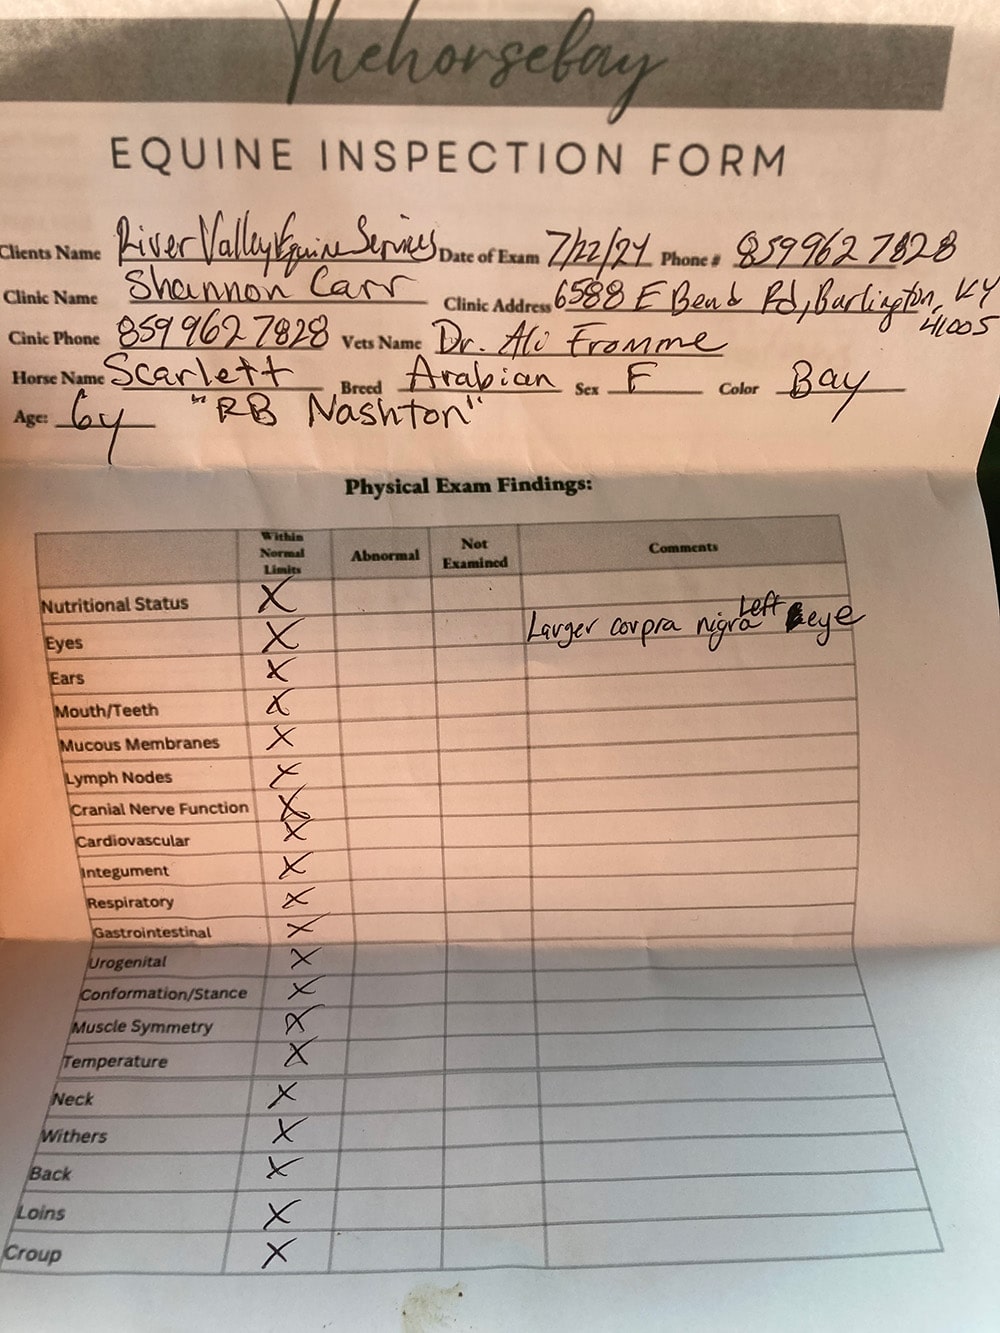 Thehorsebay
EQUINE INSPECTION FORM
Clients Name River Valley Equine Services Date of Exam 7/22/24 Phone # 859 962 7828
Clinic Name Shannon Carr Clinic Address 6588 E Bend Rd, Burlington, KY 41005
Cinic Phone 859 962 7828 Vets Name Dr. Ali Fromme
Horse Name Scarlett Breed Arabian Sex F Color Bay
Age: 6y "RB Nashton"
Physical Exam Findings:
Within Normal Limits Abnormal Not Examined Comments
Nutritional Status X
Eyes X Larger corpra nigra Left eye
Ears X
Mouth/Teeth X
Mucous Membranes X
Lymph Nodes X
Cranial Nerve Function X
Cardiovascular X
Integument X
Respiratory X
Gastrointestinal X
Urogenital X
Conformation/Stance X
Muscle Symmetry X
Temperature X
Neck X
Withers X
Back X
Loins X
Croup X